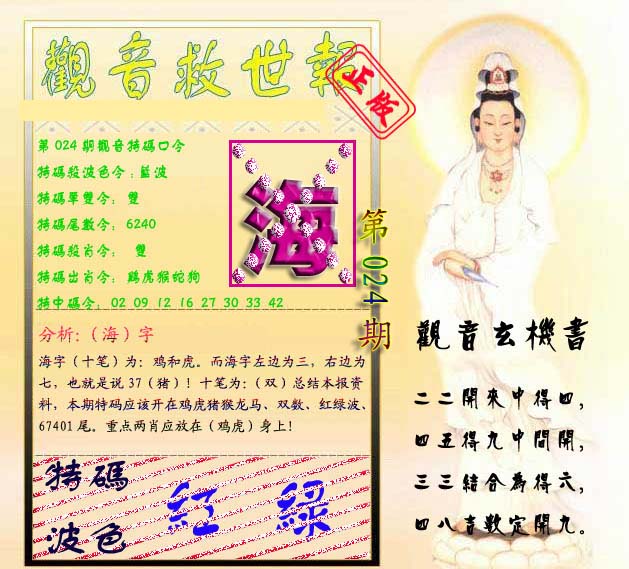 觀音救世報
正版
第024期觀音特碼口令
特碼殺波色令:藍波
特碼單雙令: 雙
特碼尾數令: 6240
特碼殺肖令: 雙
特碼出肖令: 鷄虎猴蛇狗
特中碼令: 02 09 12 16 27 30 33 42
海
第024期
分析:(海)字
海字(十笔)为:鸡和虎。而海字左边为三,右边为
七,也就是说37(猪)!十笔为:(双)总结本报资
料,本期特码应该开在鸡虎猪猴龙马、双数、红绿波、
67401尾。重点两肖应放在(鸡虎)身上!
特碼
波色
紅 綠
觀音玄機書
二二開來中得四,
四五得九中間開,
三三結合為得六,
四八吉數定開九。